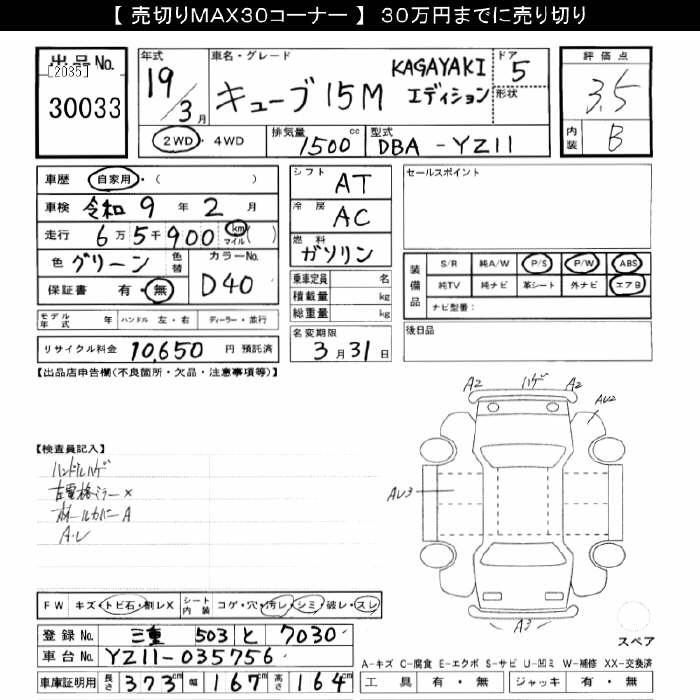 【 売切りMAX30コーナー 】 30万円までに売り切り
出品No.
[2035]
30033
年式 19/3月
車名・グレード キューブ 15M KAGAYAKI エディション
ドア 5 形状
2WD・4WD
排気量 1500 cc
型式 DBA-YZ11
評価点 3.5
内装 B
車歴 自家用・( )
車検 令和 9 年 2 月
走行 6万5千900 km マイル ( )
色 グリーン 色替 カラーNo. D40
保証書 有・無
モデル年式 年 ハンドル 左・右 ディーラー・並行
リサイクル料金 10,650 円 預託済
シフト AT
冷房 AC
燃料 ガソリン
乗車定員 名
積載量 kg
総重量 kg
名変期限 3月31日
セールスポイント
装備品 S/R 純A/W P/S P/W ABS
純TV 純ナビ 革シート 外ナビ エアB
ナビ型番:
後日品
【出品店申告欄(不良箇所・欠品・注意事項等)】
【検査員記入】
ハンドルハゲ
左電格ミラー×
ホイールカバーA
A.U
A2 ハゲ A2
AU2
AU3
A3
スペア
FW キズ・トビ石・割レX シート内装 コゲ・穴・汚レ・シミ・破レ・スレ
登録No. 三重 503 と 7030
車台No. YZ11-035756
車庫証明用 長さ 373cm 幅 167cm 高さ 164cm
A-キズ C-腐食 E-エクボ S-サビ U-凹ミ W-補修 XX-交換済
工具 有・無 ジャッキ 有・無